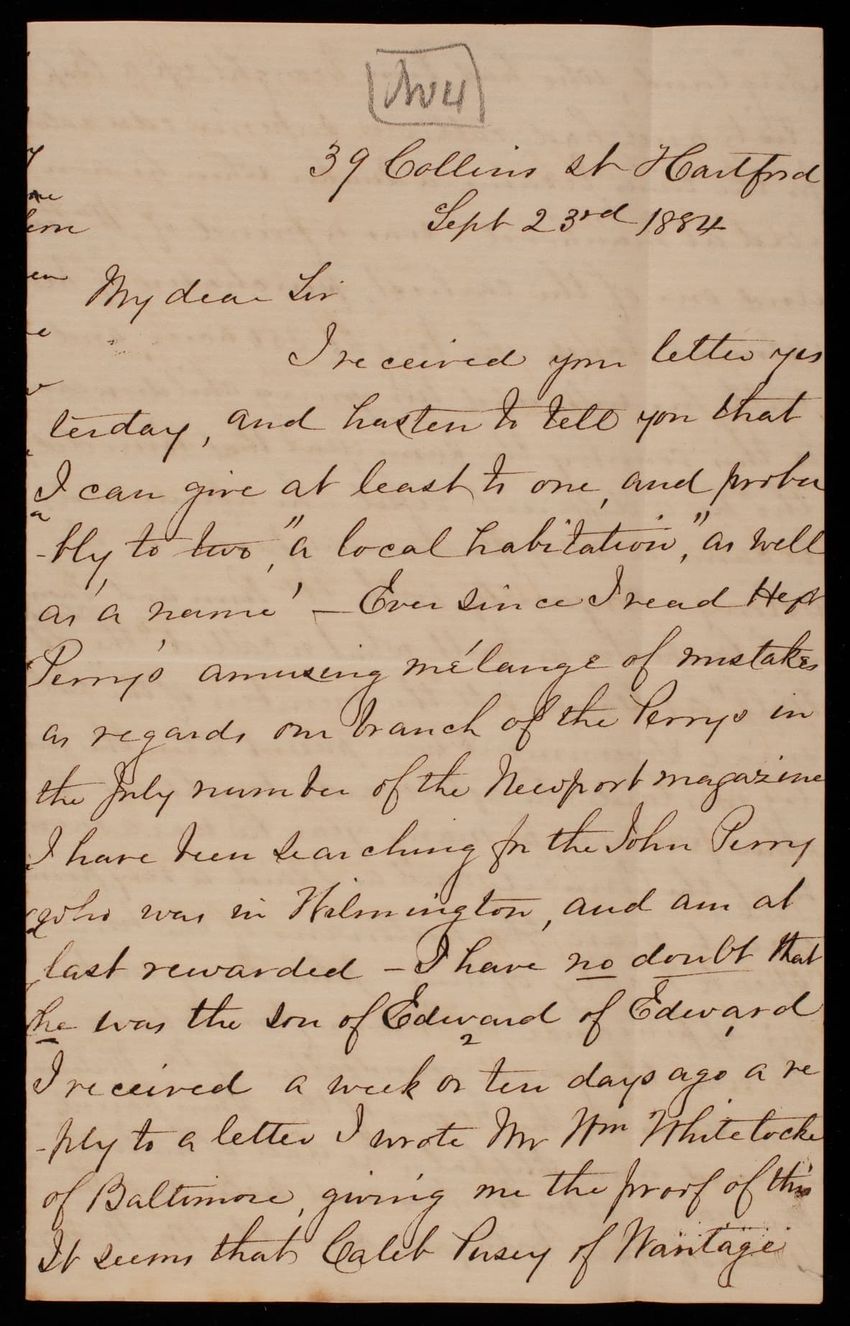 39 Collins st Hartford
Sept 23rd 1884
My dear Sir
I received your letter yes
terday, and hasten to tell you that
I can give at least to one, and proba
-bly to two, "a local habitation," as well
as 'a name' — Ever since I read Hept
Perry's amusing mélange of mistakes
as regards our branch of the Perrys in
the July number of the Newport magazine
I have been searching for the John Perry
who was in Wilmington, and am at
last rewarded — I have no doubt that
he was the son of Edward2 of Edward1
I received a week or ten days ago a re
-ply to a letter I wrote Mr Wm Whitelocke
of Baltimore, giving me the proof of this
It seems that Caleb Pusey of Wantage